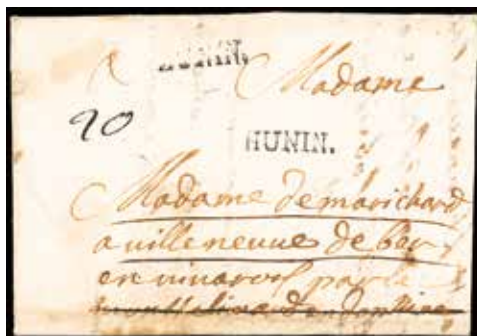 HUNIN.
Madame
20
HUNIN.
Madame de marichard
a villeneuve de ber
en vivarois par le